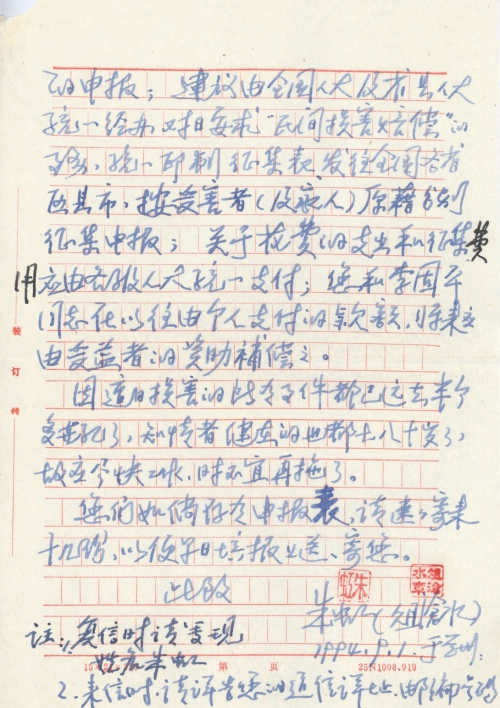 的申报；建议由全国人大及省县人大
统一经办对日要求“民间损害赔偿”的
，统一印制征集表，发往全国各省
区县市，按受害者（及家人）原籍分别
征集申报；关于花费的支出和征集费
用应由各级人大统一支付；您和李固平
同志在以往由个人支付的款额，归来应
由受益者的资助补偿之。
因遭日损害的此令文件都已过去半个
多世纪了，知情者健在的也都七八十岁了，
故应今快，时不宜再拖了。
您们如备存有申报表，请速寄来
十几份，以便早日填报上送、寄您。
此致
朱虹
注：1、复信时请写现
姓名朱虹
1994.9.1.于
15×2 第 页 25N1008.919
2、来信时，请详告您的通信详址、邮编号码
装
订
线